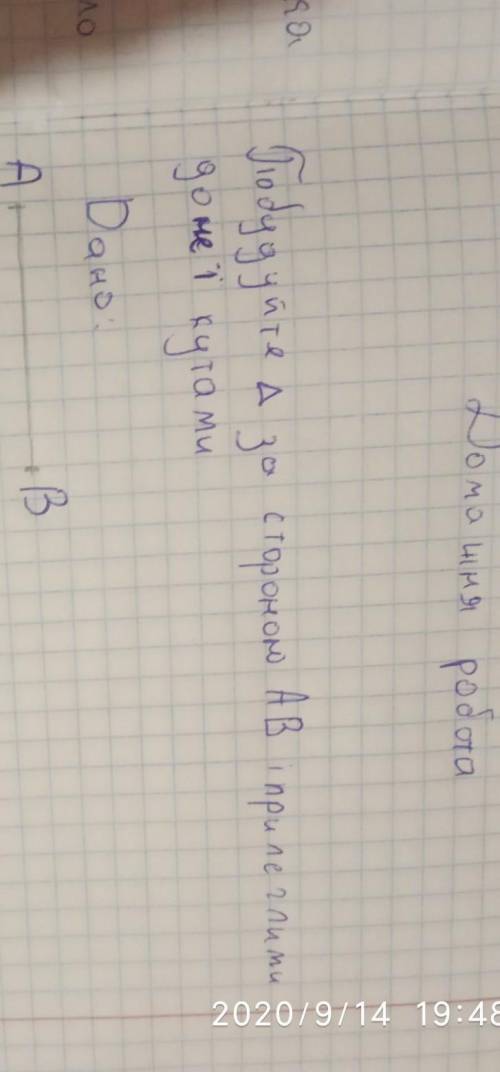 Домашня робота
Побудуйте Δ за стороною AB і прилеглими
до неї кутами
Дано:
A B
2020/9/14 19:48